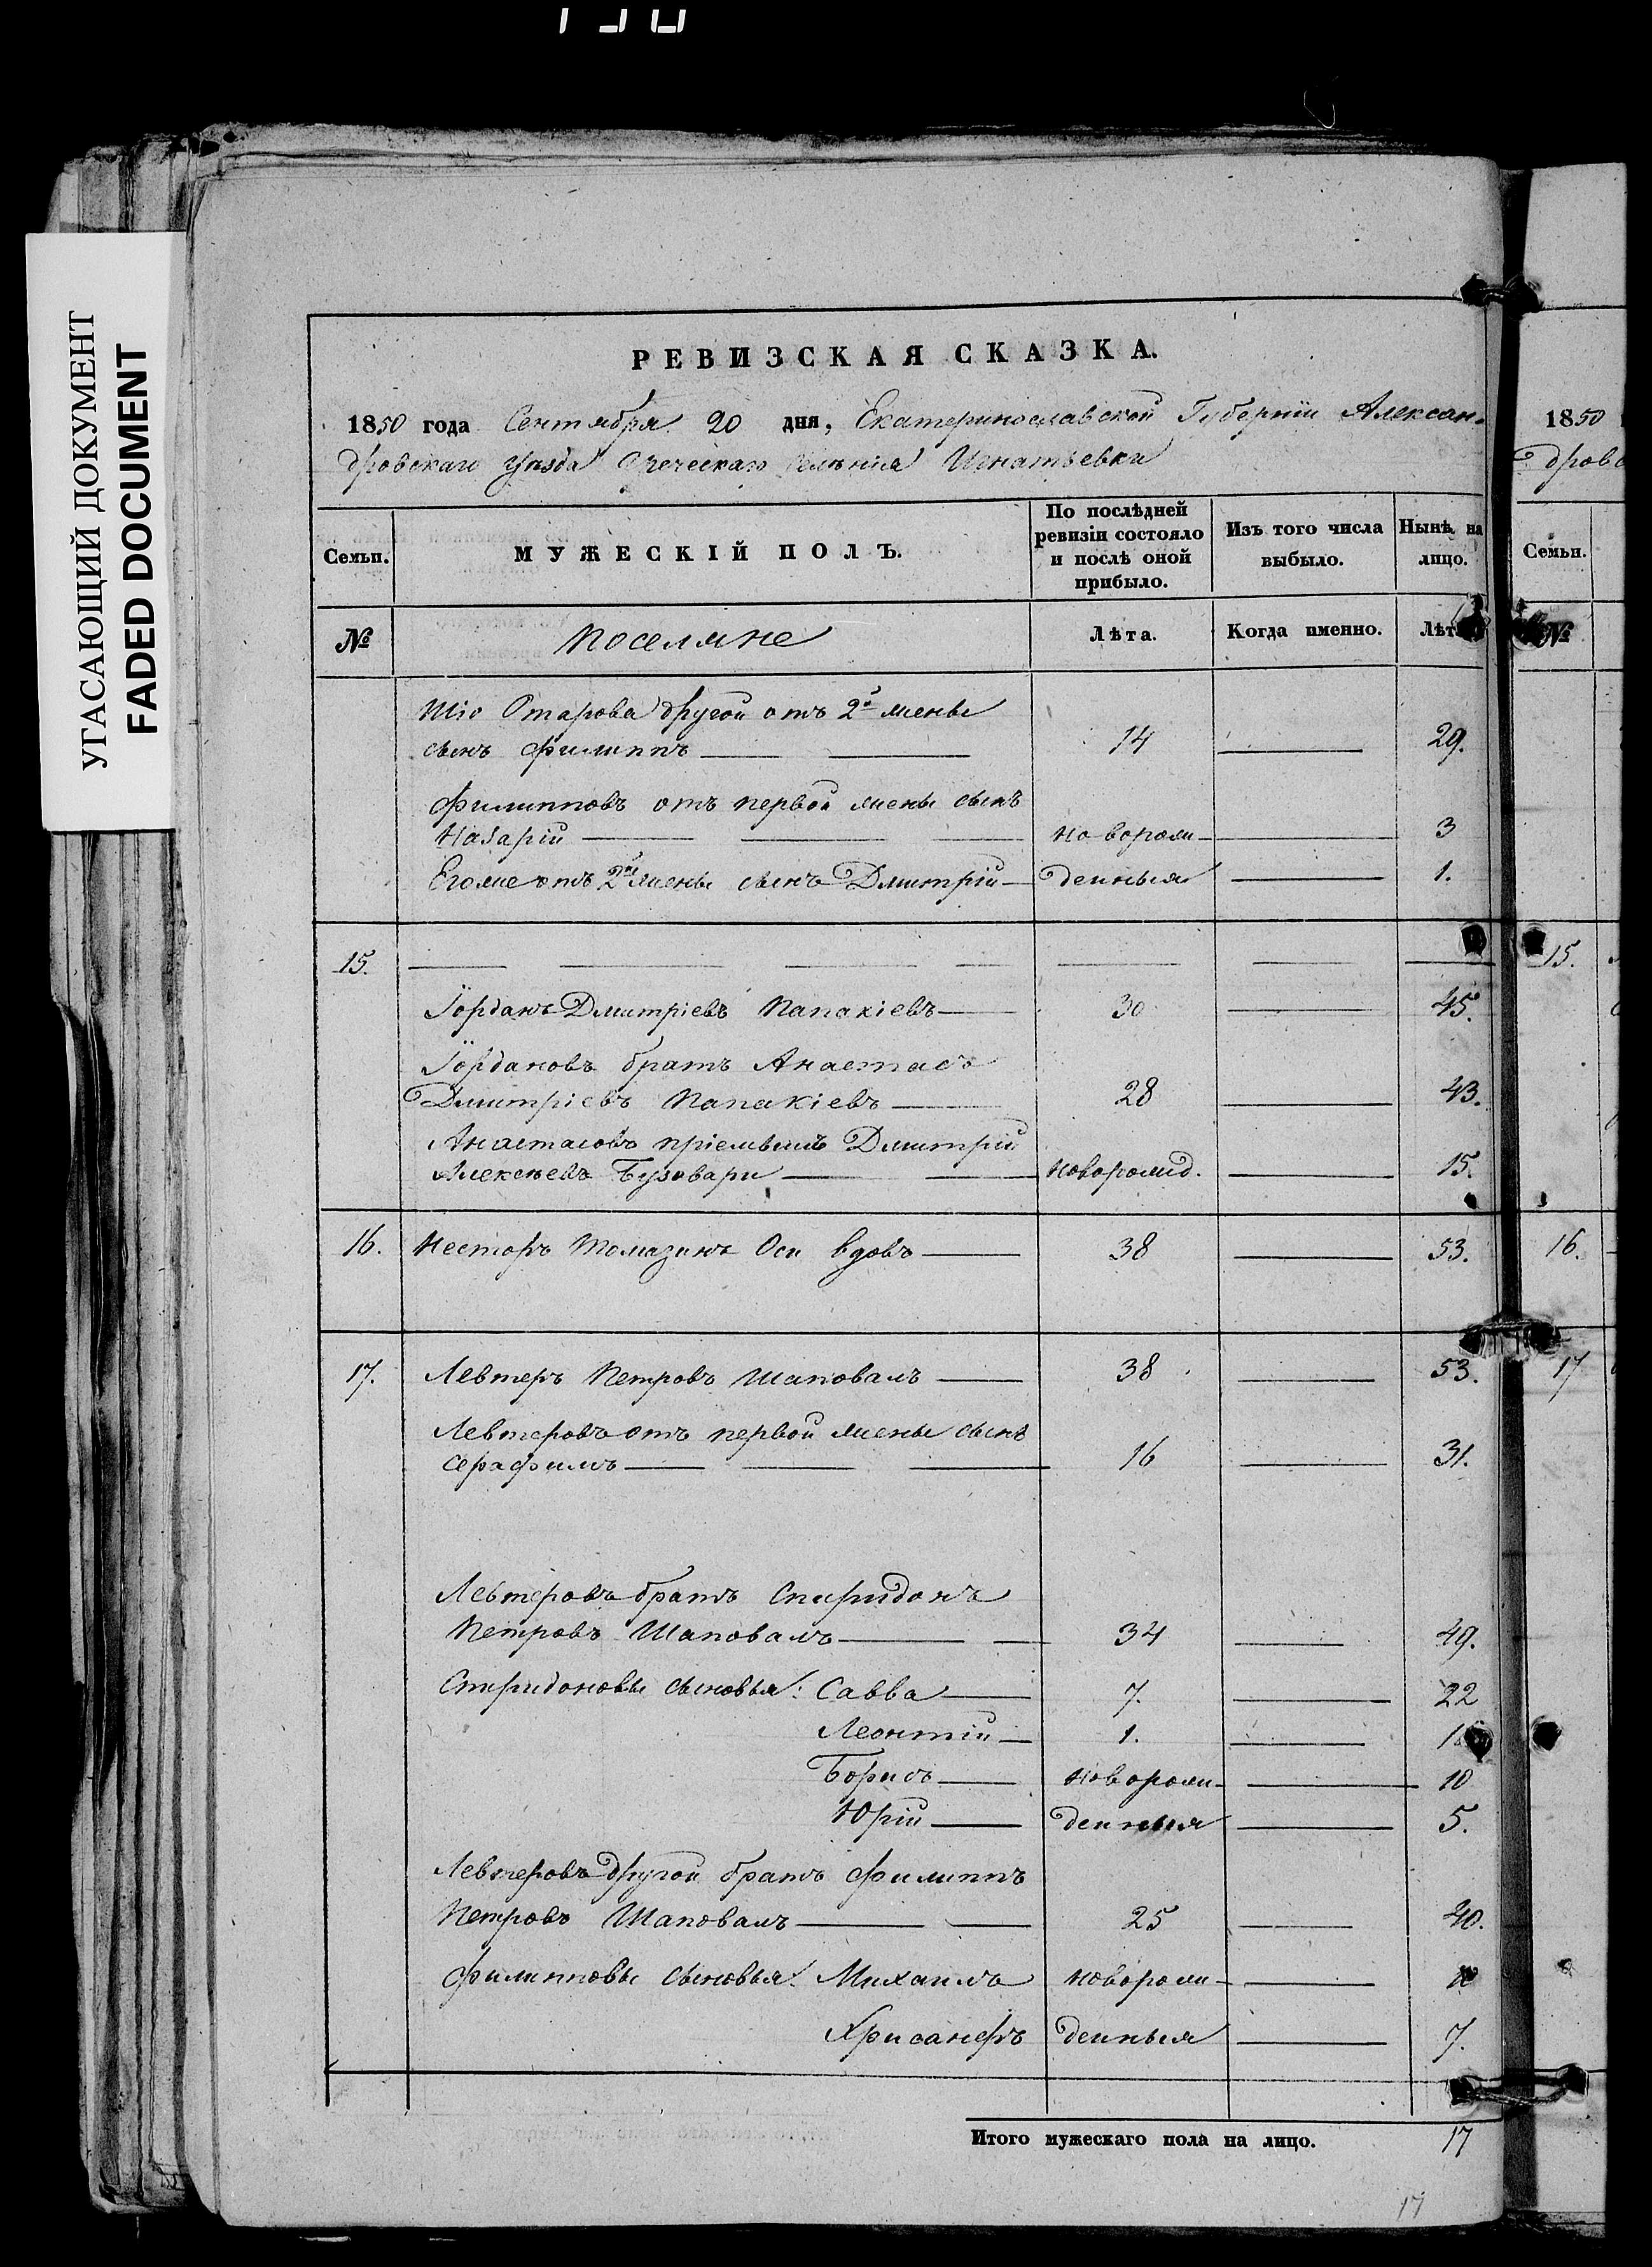 УГАСАЮЩИЙ ДОКУМЕНТ
FADED DOCUMENT
РЕВИЗСКАЯ СКАЗКА.
1850 года Сентября 20 дня, Екатеринославской Губерніи Алексан-
дровскаго уѣзда Греческаго селенія Игнатьевки
Семьи.
МУЖЕСКІЙ ПОЛЪ.
По послѣдней ревизіи состояло и послѣ оной прибыло.
Изъ того числа выбыло.
Нынѣ на лицо.
№ Поселяне Лѣта. Когда именно. Лѣта
Отарова другой отъ 2й жены
сынъ Филиппъ 14 29.
Филипповъ отъ первой жены сынъ
Назарій новорож- 3
Егоже отъ 2й жены сынъ Дмитрій денныя 1.
15.
Іорданъ Дмитріевъ Папакіевъ 30 45.
Іордановъ братъ Анастасъ
Дмитріевъ Папакіевъ 28 43.
Анастасовъ пріемышъ Дмитрій
Алексѣевъ Бузовари новорожд. 15.
16. Несторъ Томазинъ Оси вдовъ 38 53.
17. Левтеръ Петровъ Шаповалъ 38 53.
Левтеровъ отъ первой жены сынъ
Серафимъ 16 31.
Левтеровъ братъ Спиридонъ
Петровъ Шаповалъ 34 49.
Спиридоновы сыновья: Савва 7. 22
Леонтій 1.
Борисъ новорож- 10
Юрій денныя 5.
Левтеровъ другой братъ Филиппъ
Петровъ Шаповалъ 25 40.
Филипповы сыновья: Михаилъ новорож-
Хрисанфъ денныя 7.
Итого мужескаго пола на лицо. 17
17
1850
дров
Семьи.
№
15.
16.
17